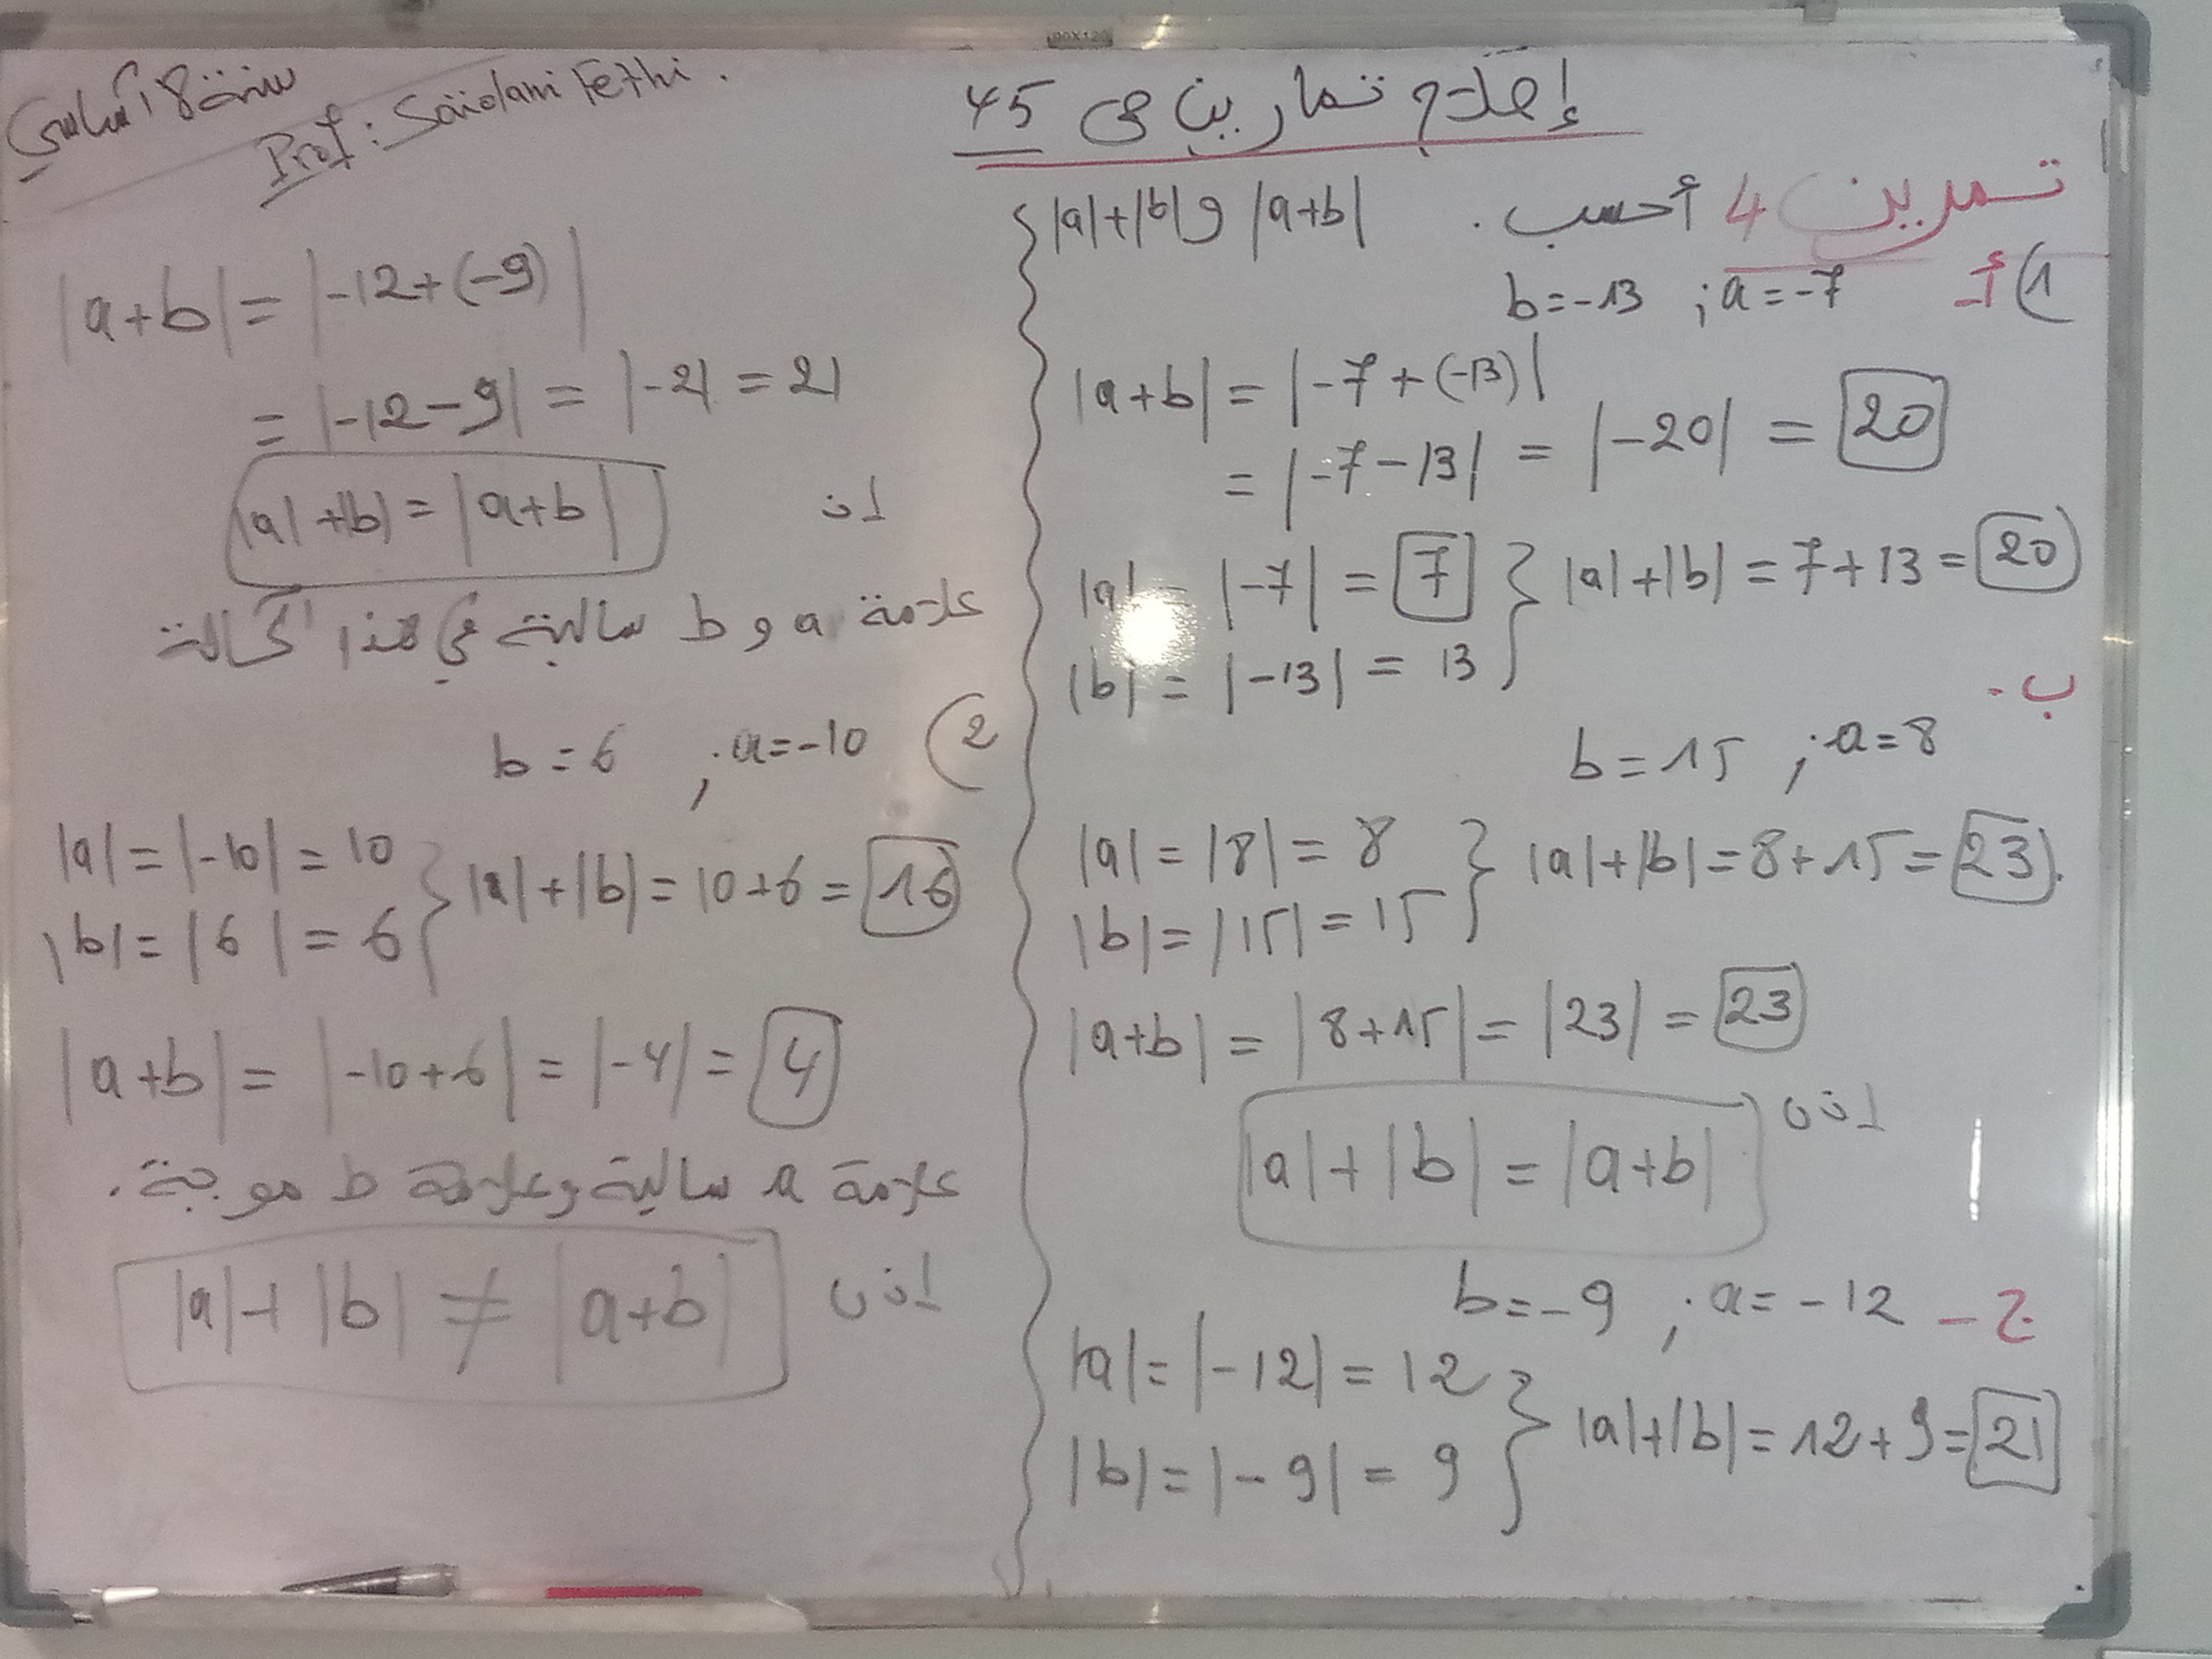 سنة 8 أساسي
Prof: Saidani Fethi.
إصلاح تمارين ص 45
تمرين 4 أحسب . |a+b| و |a|+|b|
1) أ- a=-7 ; b=-13
|a+b| = |-7+(-13)|
= |-7-13| = |-20| = 20
|a| = |-7| = 7 } |a|+|b| = 7+13 = 20
|b| = |-13| = 13
ب-
a=8 ; b=15
|a| = |8| = 8 } |a|+|b| = 8+15 = 23.
|b| = |15| = 15
|a+b| = |8+15| = |23| = 23
اذن
|a|+|b| = |a+b|
ج- a=-12 ; b=-9
|a| = |-12| = 12
|b| = |-9| = 9 } |a|+|b| = 12+9 = 21
|a+b| = |-12+(-9)|
= |-12-9| = |-21| = 21
اذن |a|+|b| = |a+b|
علامة a و b سالبة في هذا الحالة
2) a=-10 ; b=6
|a| = |-10| = 10 } |a|+|b| = 10+6 = 16
|b| = |6| = 6
|a+b| = |-10+6| = |-4| = 4
علامة a سالبة وعلامة b موجبة.
اذن |a|+|b| ≠ |a+b|